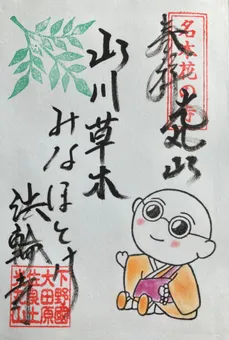 名木花の寺
奉拝 光丸山
山川草木
みなほとけ
法輪寺
下野國
大田原
佐良土
光丸山